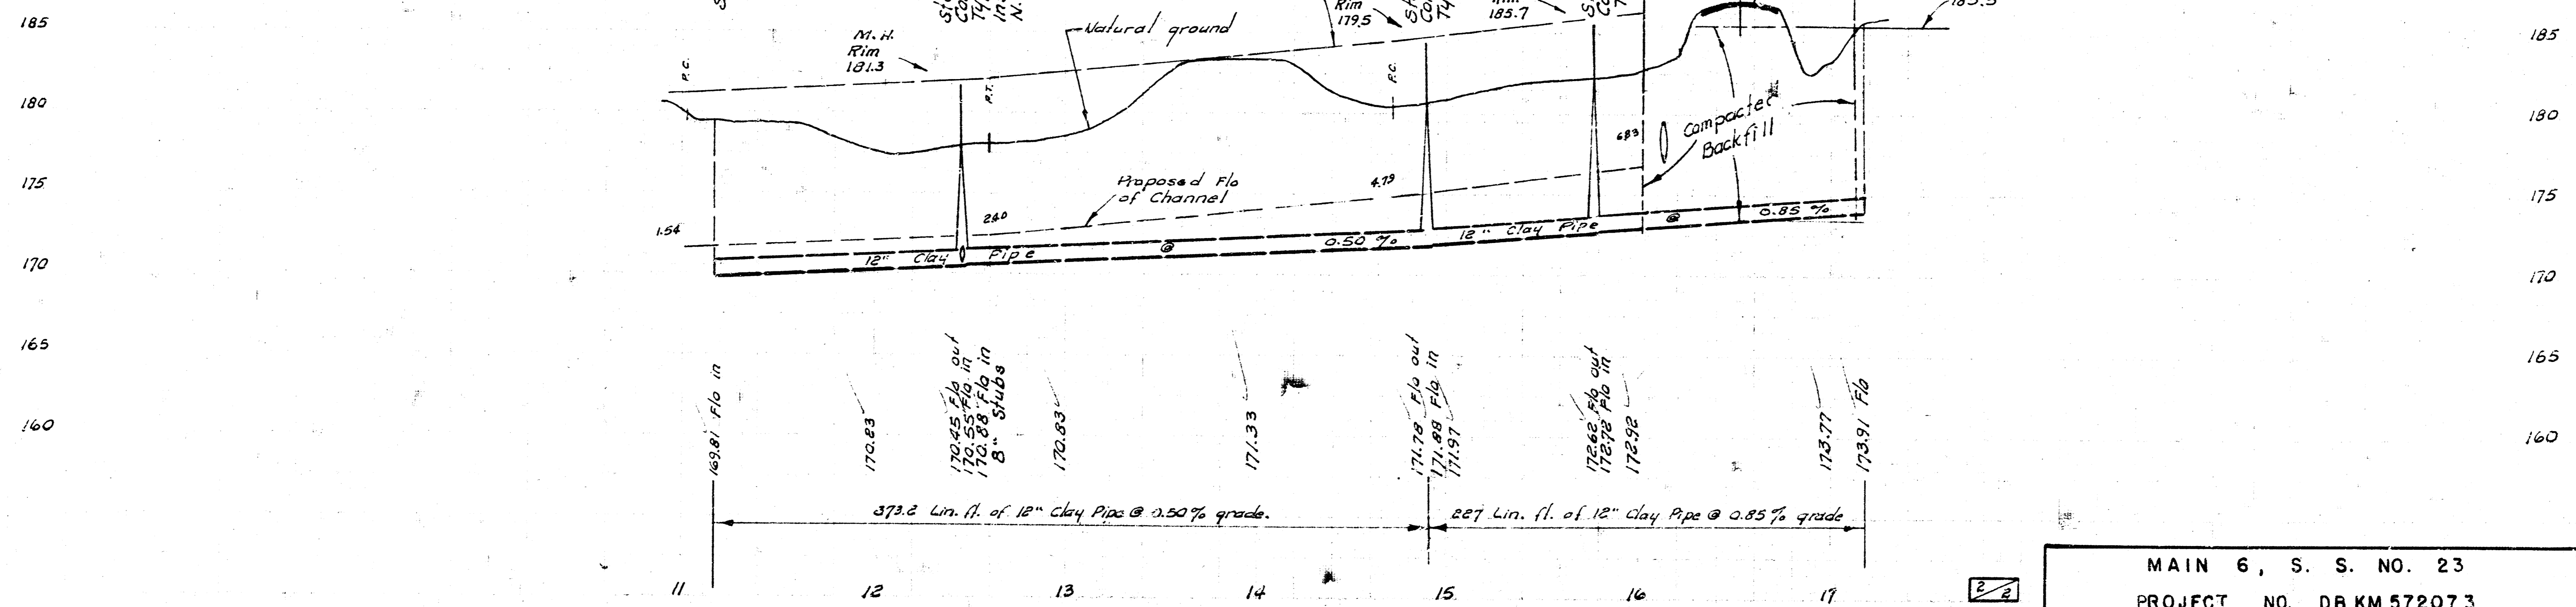 185
180
175
170
165
160
M.H.
Rim
181.3
P.C.
P.T.
Natural ground
Rim
179.5
185.7
P.C.
185
180
175
170
165
160
Compacted
Backfill
6.83
4.79
2.40
1.54
Proposed Flo
of Channel
12" Clay Pipe @ 0.50 %
12" Clay Pipe @ 0.85 %
169.81 Flo in
170.23
170.45 Flo out
170.55 Flo in
170.88 Flo in
8" Stubs
170.83
171.33
171.78 Flo out
171.88 Flo in
171.97
172.62 Flo out
172.72 Flo in
172.92
173.77
173.91 Flo
373.2 Lin. ft. of 12" Clay Pipe @ 0.50% grade.
227 Lin. ft. of 12" Clay Pipe @ 0.85% grade
11 12 13 14 15 16 17
2/2
MAIN 6, S. S. NO. 23
PROJECT NO. DBKM572073